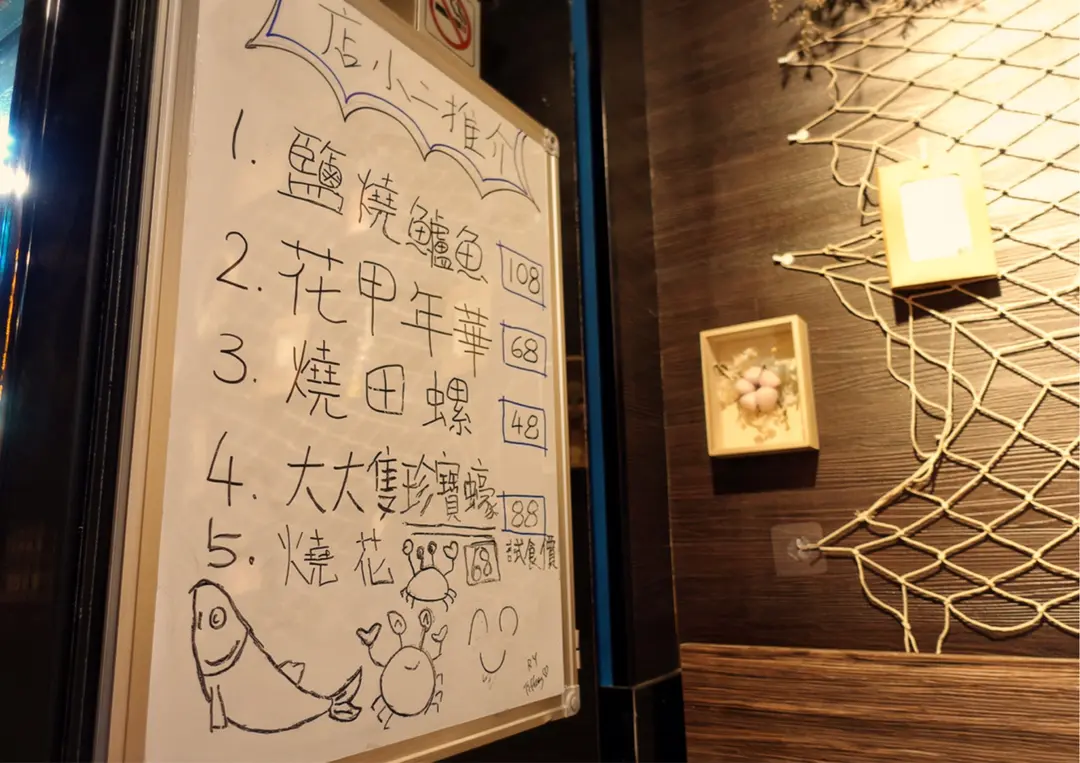 店小二推介
1. 鹽燒鱸魚 108
2. 花甲年華 68
3. 燒田螺 48
4. 大大隻珍寶蠔 88
5. 燒花 68 試食價